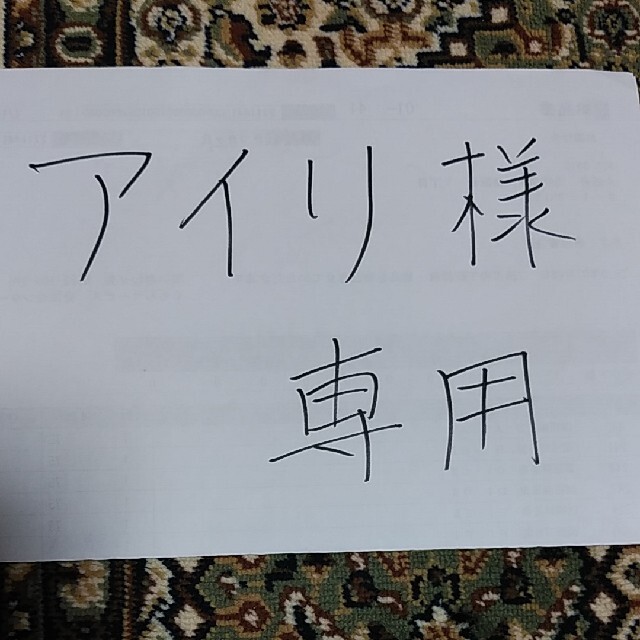 アイリ様
専用